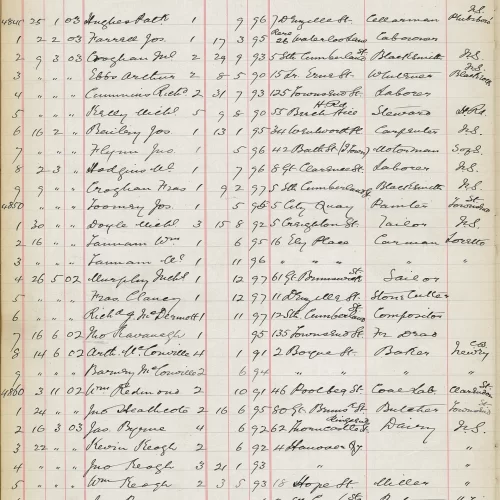 4841 25 1 03 Hughes Patk 1 9 96 7 D'Ngille St. Cellarman
1 2 2 03 Farrell Jos 1 17 3 95 26 Waterloo Lane Laborer
2 9 3 03 Croghan Ml 2 29 9 93 5 Sth Cumberland St Blacksmith N.S.
3 " " " Ebbs Arthur 2 8 5 90 15 Lr. Erne St.
4 " " " Cummins Richd 2 31 7 93 125 Townsend St. Laborer
5 " " " 5 9 8 90 55 Steward
6 16 2 " Jos 1 13 1 95 Carpenter N.S.
7 " " " Flynn Jas 1 5 96 42 Bath St Motorman
8 2 3 " Hodgins Wm 1 7 96 8 Gt Clarence St. Laborer N.S.
9 9 " " Croghan Fras 1 9 2 97 5 Sth Cumberland St Blacksmith N.S.
4850 " " " Toomey Jos 1 5 96 5 City Quay Painter
1 30 " " Doyle Michl 3 15 8 92 5 Creighton St. Tailor N.S.
2 16 " " Tannam Wm 1 6 95 16 Ely Place Carman Loretto
3 " " " Tannam Ml 1 11 96 " " " "
4 26 5 02 Murphy Michl 1 12 97 61 Gt Brunswick St. Sailor
5 " " " Fras Clancy 1 12 97 11 D'Ngille St Stone Cutter
6 " " " Richd J. McDermott 1 11 97 12 Sth Cumberland St Compositor
7 16 6 02 Jno Kavanagh 1 95 135 Townsend St. Fr Dead
8 14 6 02 Arth. McConville 4 1 91 2 Boyne St. Baker Newry
9 " " " Barney McConville 2 6 94 " " "
4860 3 11 02 Wm Redmond 2 10 91 46 Poolbeg St. Coal Lab. Clarendon St.
1 24 " " Jno Heathcote 2 16 6 95 80 Gt Bruns St. Butcher Townsend St
2 16 3 03 Jas Byrne 4 6 92 62 Thorncastle St. Ringsend Dairy N.S.
3 22 " " Kevin Keogh 2 6 92 4 Hanover Qy "
4 " " " Jno Keogh 3 21 1 93 " "
5 " " " Wm Keogh 2 3 5 93 18 Hope St. Miller "